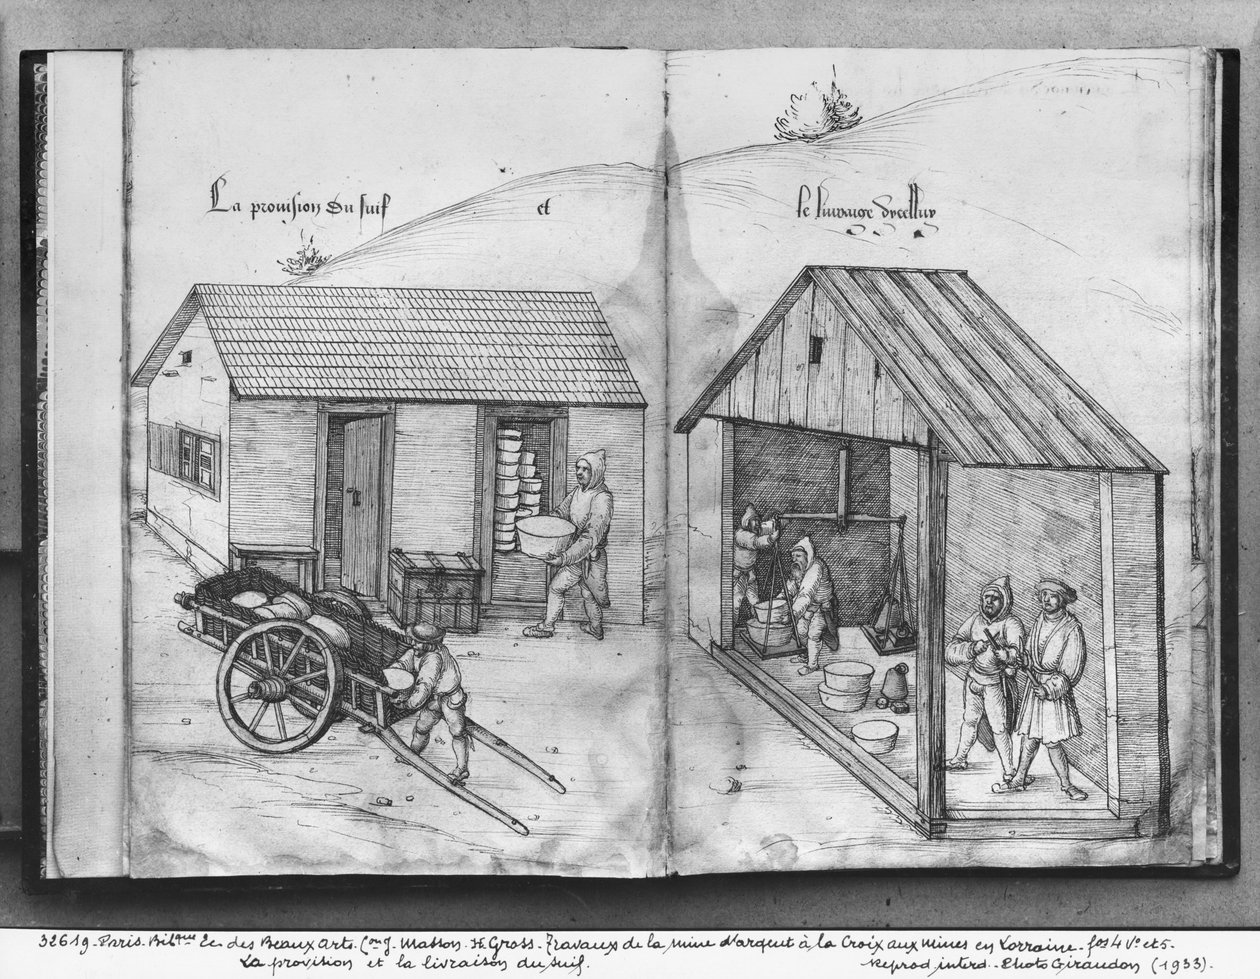 La provision du suif et le livraige dicelluy
32619 - Paris. Bibque Ec. des Beaux Arts. Con J. Masson. H. Gross. Travaux de la mine d'argent à la Croix aux Mines en Lorraine. fos 4 Vo et 5.
La provision et la livraison du suif. Reprod. interd. Photo Giraudon (1933).